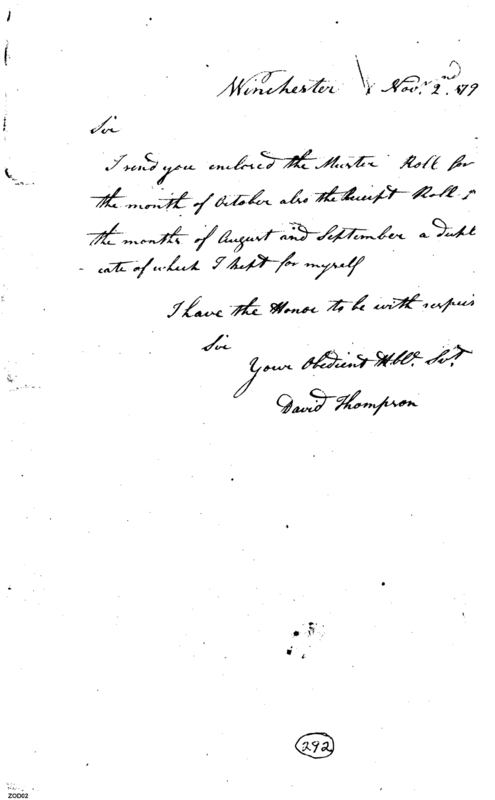 Winchester Nov.r 2.nd 179
Sir
I send you enclosed the Muster Roll for
the month of October also the Receipt Roll
the months of August and September a dupli
cate of which I kept for myself
I have the Honor to be with respec
Sir
Your Obedient Hble. Svt.
David Thompson
292
ZOD02